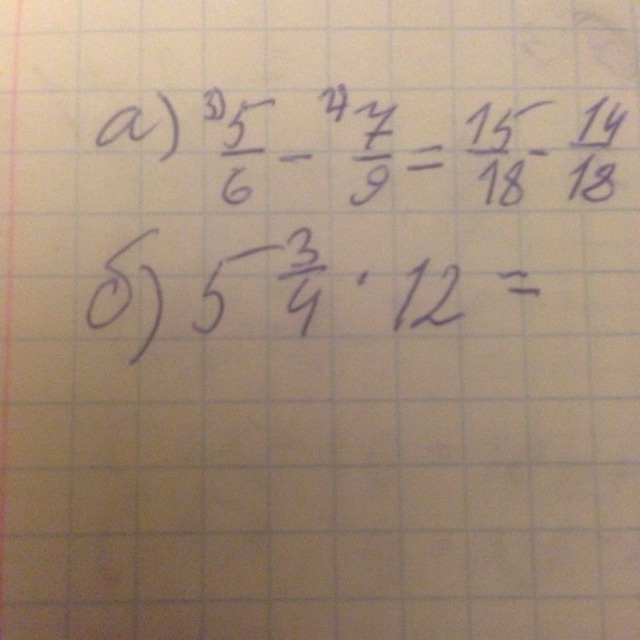 а) ³⁾5/6 - ²⁾7/9 = 15/18 - 14/18
б) 5 3/4 · 12 =